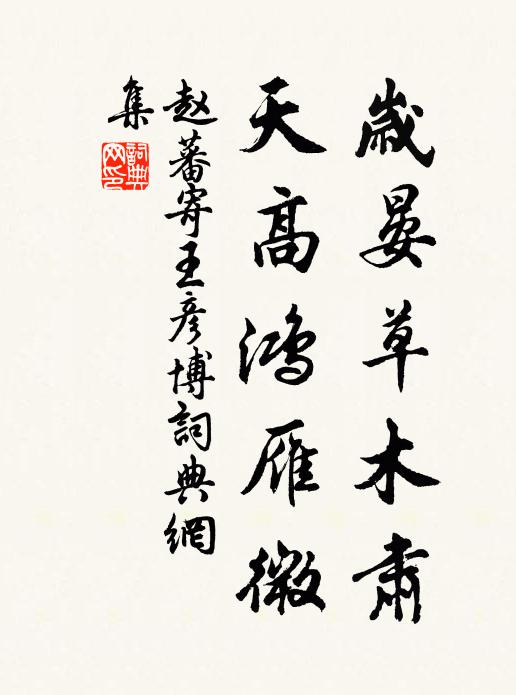 歲晏草木肅
天高鴻雁微
赵蕃寄王彦博詞典網
集
詞典网印